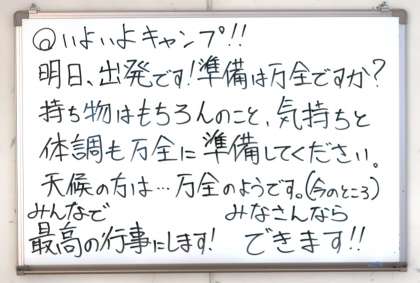 @いよいよキャンプ!!
明日、出発です!準備は万全ですか?
持ち物はもちろんのこと、気持ちと
体調も万全に準備してください。
天候の方は…万全のようです。(今のところ)
みんなで みなさんなら
最高の行事にします! できます!!